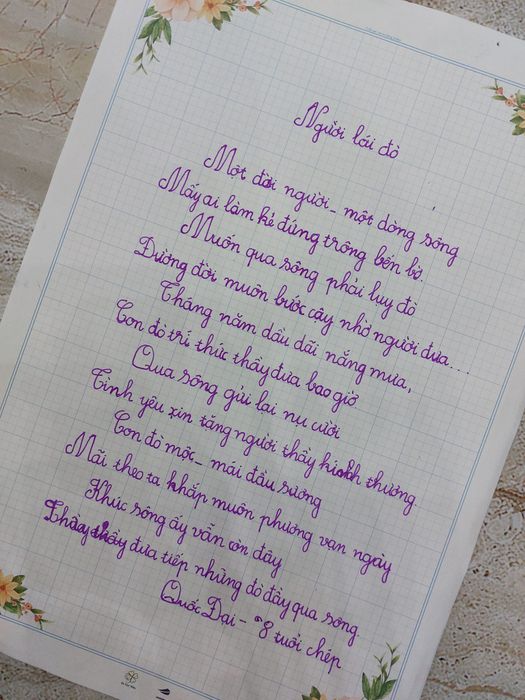 Người lái đò
Một đời người - một dòng sông
Mấy ai làm kẻ đứng trông bến bờ.
Muốn qua sông phải luỵ đò
Đường đời muôn bước cậy nhờ người đưa...
Tháng năm dầu dãi nắng mưa,
Con đò trí thức thầy đưa bao giờ
Qua sông gửi lại nụ cười
Tình yêu xin tặng người thầy kính thương.
Con đò mộc - mái đầu sương
Mãi theo ta khắp muôn phương vạn ngày
Khúc sông ấy vẫn còn đây
Thầy thầy đưa tiếp những đò đầy qua sông.
Quốc Đại - 8 tuổi chép